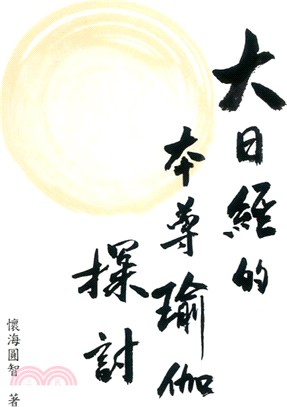 大日經的
本尊瑜伽
探討
懷海圓智 著